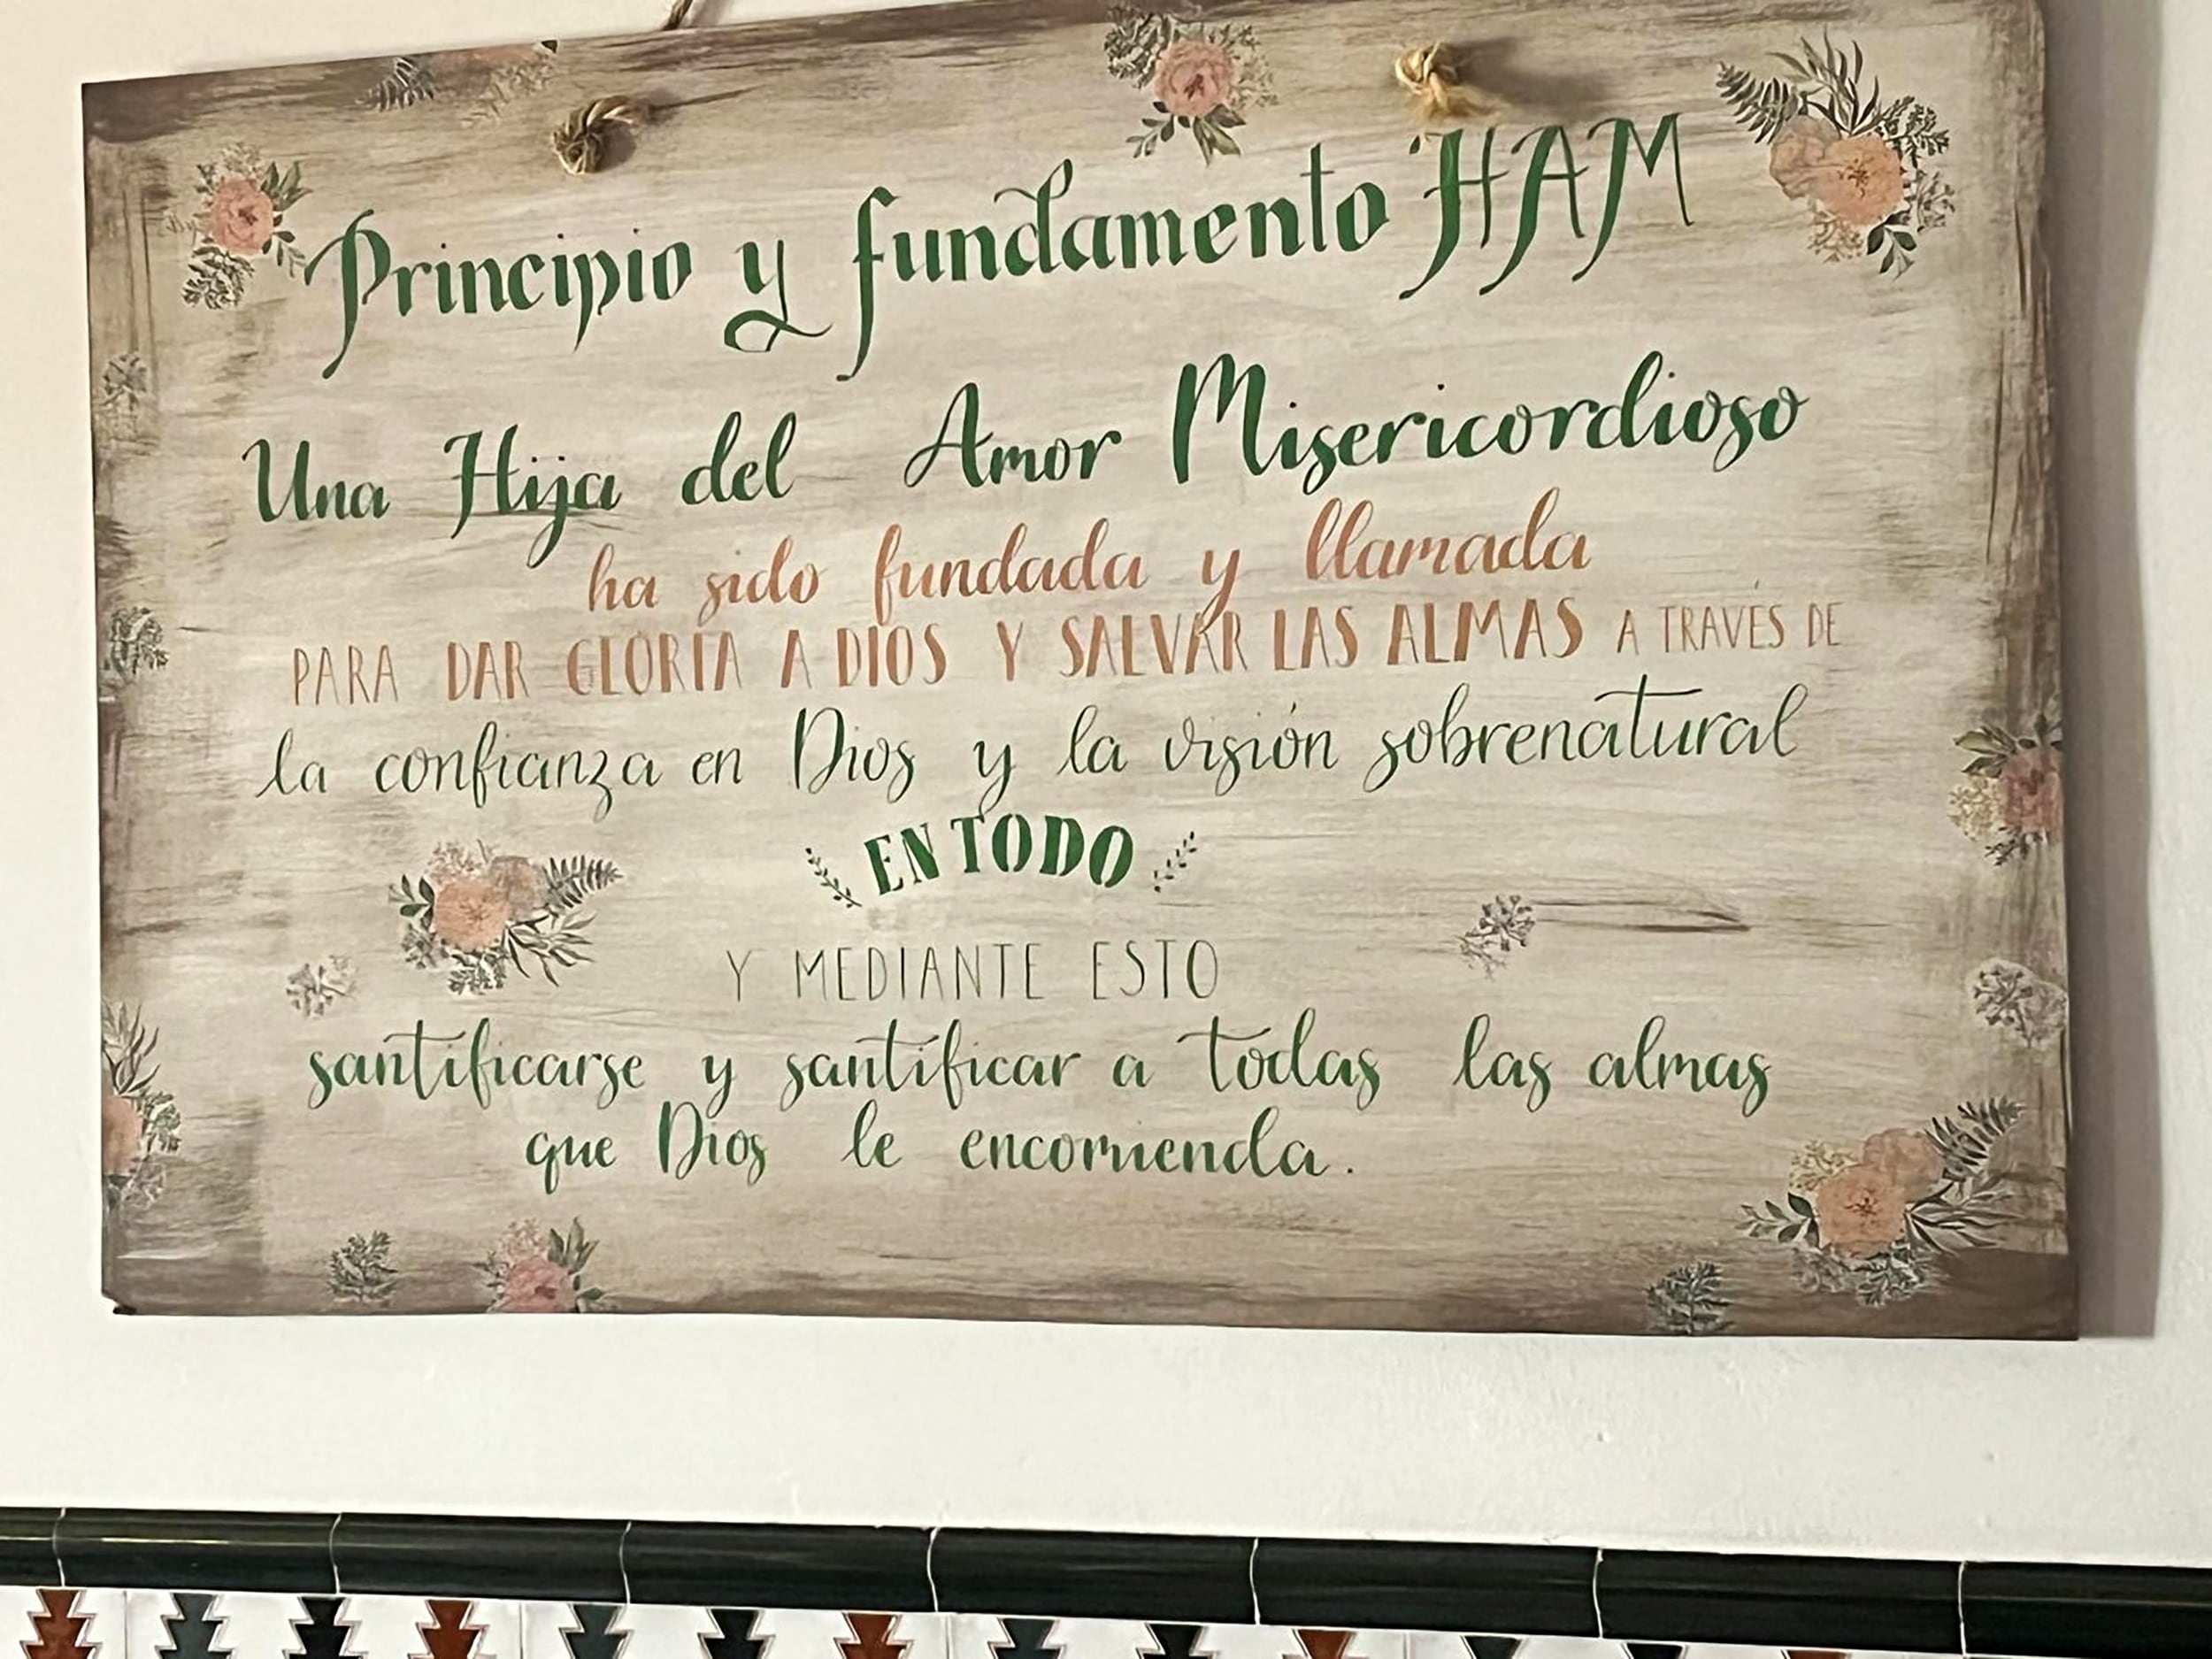 Principio y fundamento HAM
Una Hija del Amor Misericordioso
ha sido fundada y llamada
PARA DAR GLORIA A DIOS Y SALVAR LAS ALMAS A TRAVÉS DE
la confianza en Dios y la visión sobrenatural
EN TODO
Y MEDIANTE ESTO
santificarse y santificar a todas las almas
que Dios le encomienda.